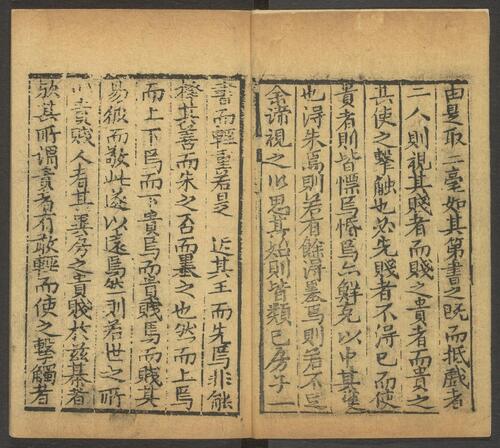 由是取二毫如其第書之既而抵戲者
二人則視其賤者而賤之貴者而貴之
其使之擊触也必先賤者不得已而使
貴者則皆慓焉惛焉亦鮮克以中其獲
也得朱焉則若有餘得墨焉則若不足
余諦視之以思其始則皆類已房子一
書而輕重若是 近其王而先焉非能
擇其善而朱之否而墨之也然而上焉
而上下焉而下貴焉而貴賤焉而賤其
易彼而敬此遂以遠焉然則若世之所
以貴賤人者其異房之貴賤於兹棊者
歟其所謂貴者有敢輕而使之擊觸者